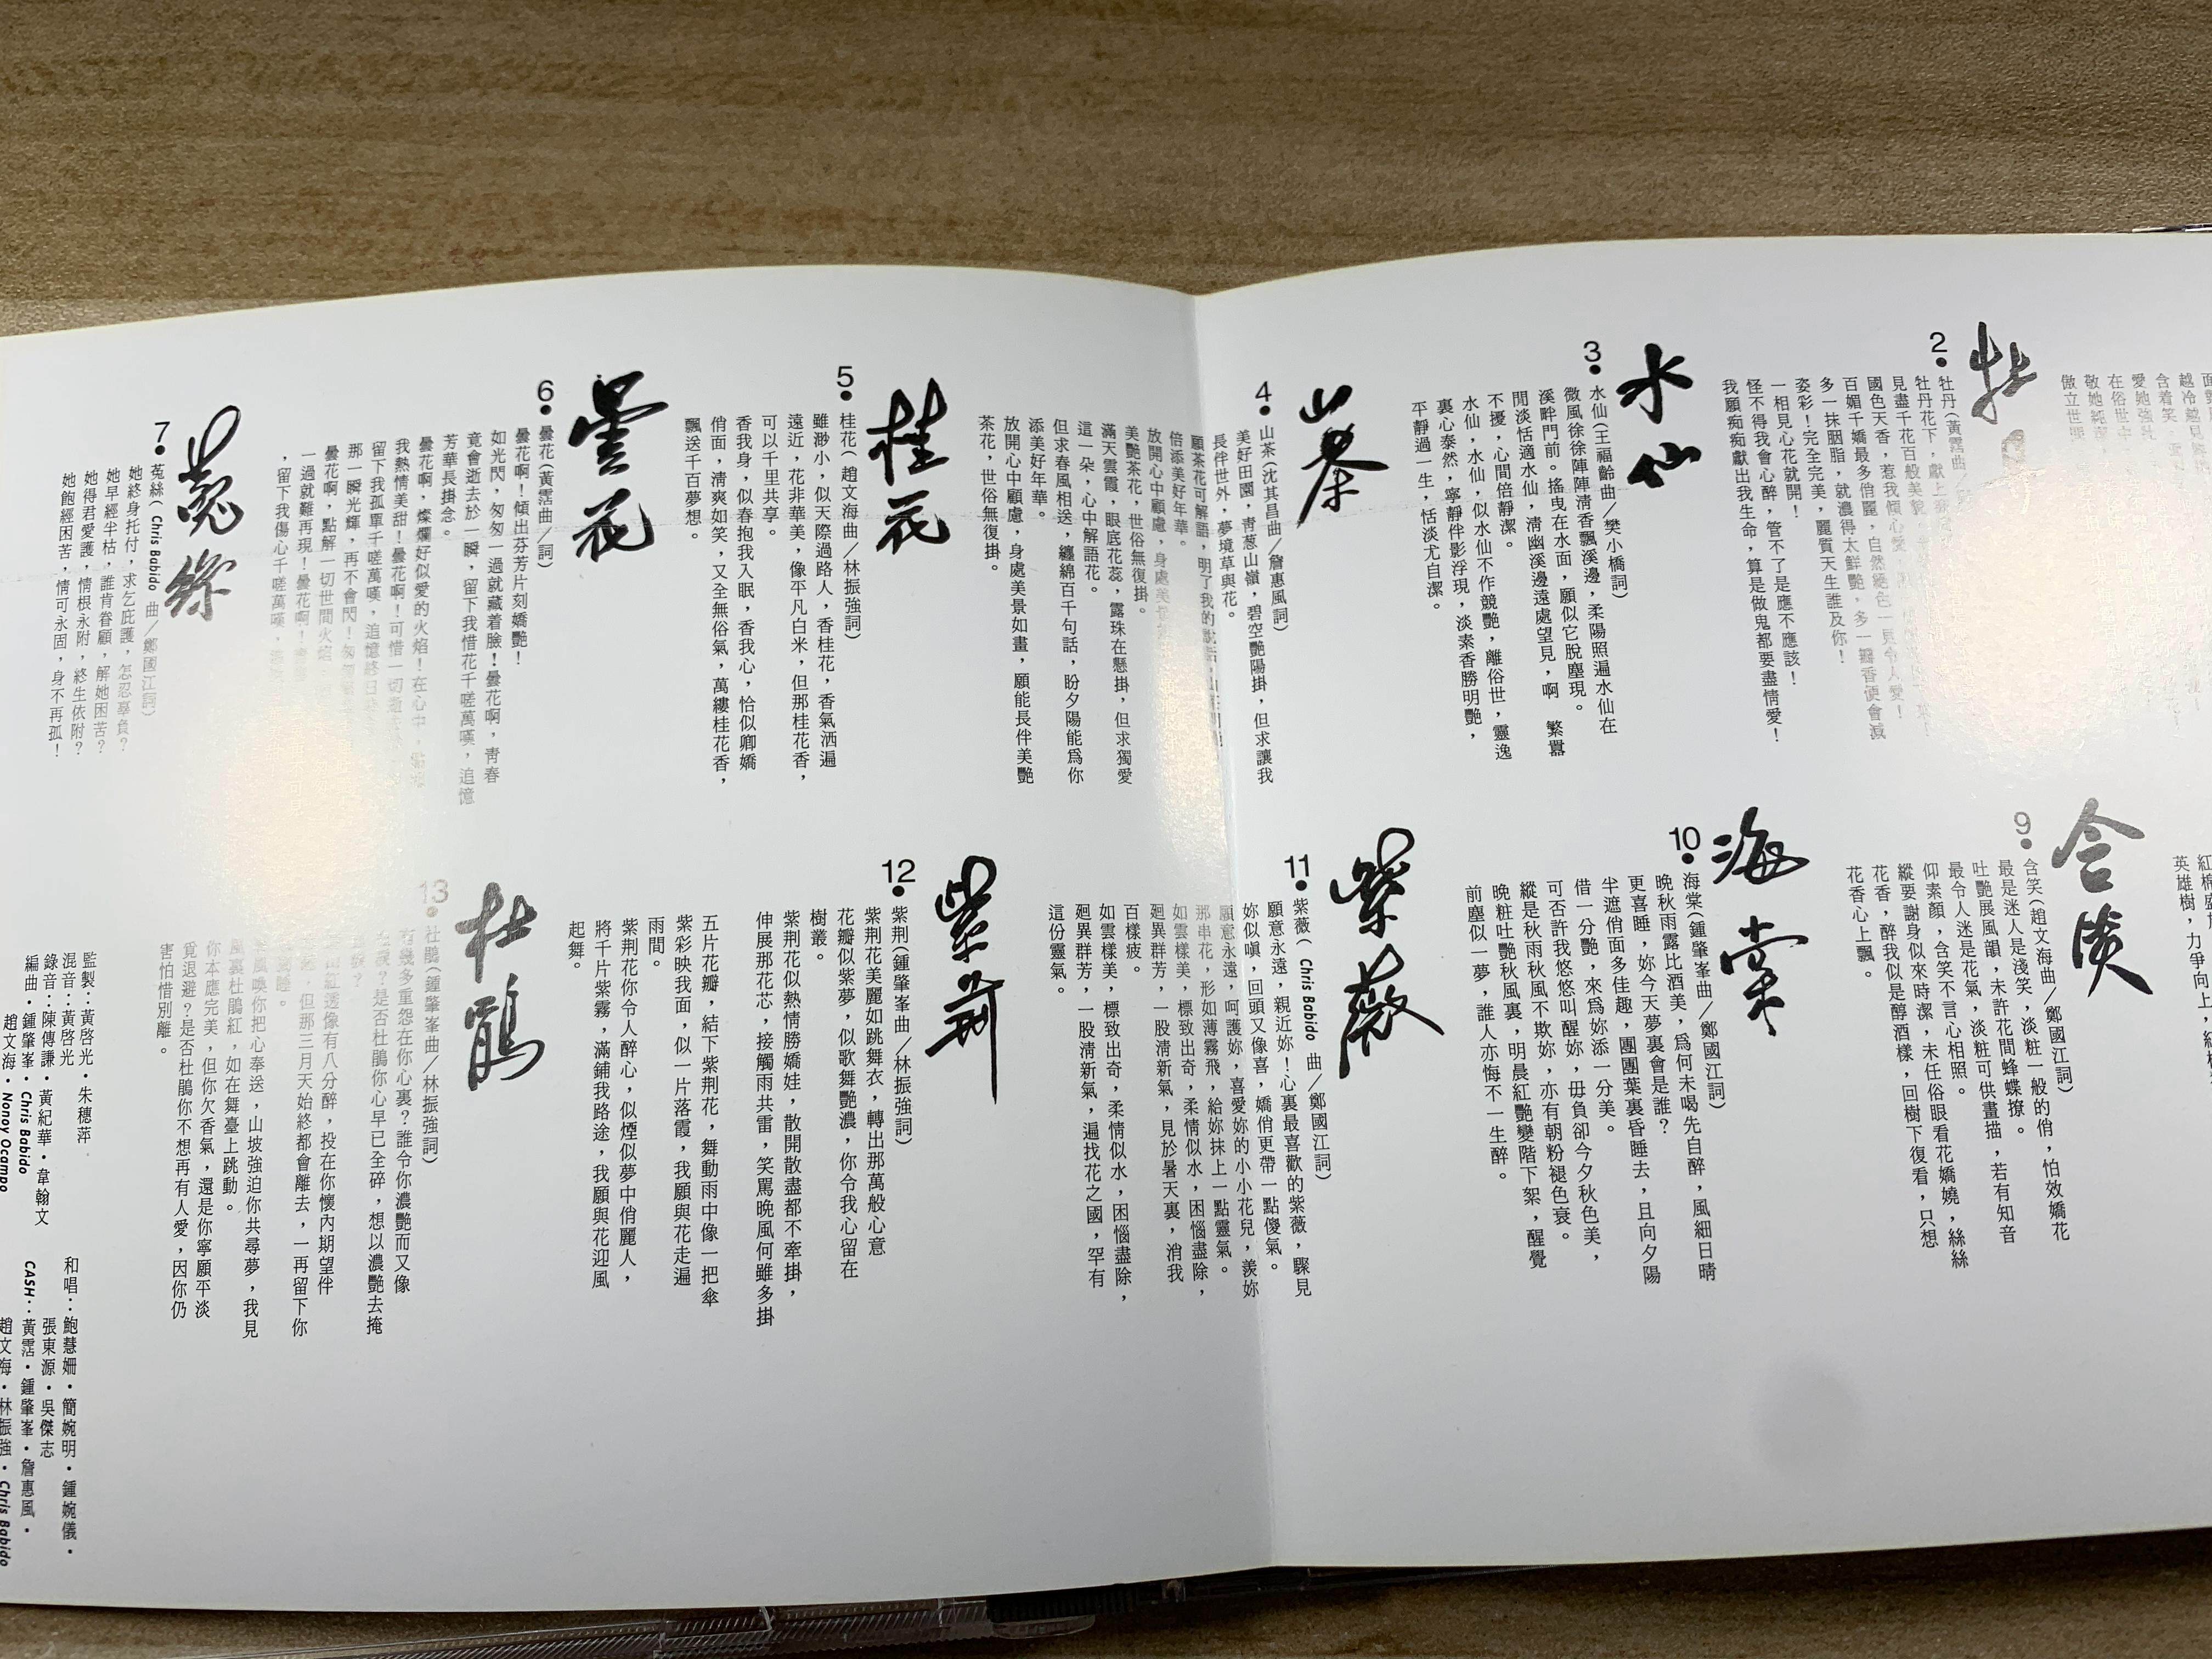 牡
2•牡丹(黃霑曲
牡丹花下，獻上
見盡千花百般美貌
國色天香，惹我傾心愛
百媚千嬌最多俏麗，自然絕色一見令人愛！
多一抹胭脂，就濃得太鮮艷，多一瓣香便會減
姿彩！完全完美，麗質天生誰及你！
一相見心花就開！
怪不得我會心醉，管不了是應不應該！
我願痴痴獻出我生命，算是做鬼都要盡情愛！
水仙
3•水仙(王福齡曲／樊小橋詞)
微風徐徐陣陣清香飄溪邊，柔陽照遍水仙在
溪畔門前。搖曳在水面，願似它脫塵現。
閒淡恬適水仙，清幽溪邊遠處望見，啊　繁囂
不擾，心間倍靜潔。
水仙，水仙，似水仙不作競艷，離俗世，靈逸
裏心泰然，寧靜伴影浮現，淡素香勝明艷，
平靜過一生，恬淡尤自潔。
山茶
4•山茶(沈其昌曲／詹惠風詞)
美好田園，青葱山嶺，碧空艷陽掛，但求讓我
長伴世外，夢境草與花。
願茶花可解語，明了我的說話，
倍添美好年華。
放開心中顧慮，身處美
美艷茶花，世俗無復掛。
滿天雲霞，眼底花蕊，露珠在懸掛，但求獨愛
這一朵，心中解語花。
但求春風相送，纏綿百千句話，盼夕陽能爲你
添美好年華。
放開心中顧慮，身處美景如畫，願能長伴美艷
茶花，世俗無復掛。
桂花
5•桂花(趙文海曲／林振強詞)
雖渺小，似天際過路人，香桂花，香氣洒遍
遠近，花非華美，像平凡白米，但那桂花香，
可以千里共享。
香我身，似春抱我入眠，香我心，恰似卿嬌
俏面，清爽如笑，又全無俗氣，萬縷桂花香，
飄送千百夢想。
曇花
6•曇花(黃霑曲／詞)
曇花啊！傾出芬芳片刻嬌艷！
如光閃，匆匆一過就藏着臉！曇花啊，青春
竟會逝去於一瞬，留下我惜花千嗟萬嘆，追憶
芳華長掛念。
曇花啊，燦爛好似愛的火焰！在心中，
我熱情美甜！曇花啊！可惜一切
留下我孤單千嗟萬嘆，追憶終日
那一瞬光輝，再不會閃！匆匆
曇花啊，點解一切世間火焰
一過就難再現！曇花啊！
，留下我傷心千嗟萬嘆，
菟絲
7•菟絲(Chris Babido 曲／鄭國江詞)
她終身托付，求乞庇護，怎忍辜負？
她早經半枯，誰肯眷顧，解她困苦？
她得君愛護，情根永附，終生依附？
她飽經困苦，情可永固，身不再孤！
紅棉盛放
英雄樹，力爭向上，紅棉
含笑
9•含笑(趙文海曲／鄭國江詞)
最是迷人是淺笑，淡粧一般的俏，怕效嬌花
吐艷展風韻，未許花間蜂蝶撩。
最令人迷是花氣，淡粧可供畫描，若有知音
仰素顏，含笑不言心相照。
縱要謝身似來時潔，未任俗眼看花嬌嬈，絲絲
花香，醉我似是醇酒樣，回樹下復看，只想
花香心上飄。
海棠
10•海棠(鍾肇峯曲／鄭國江詞)
晚秋雨露比酒美，爲何未喝先自醉，風細日晴
更喜睡，妳今天夢裏會是誰？
半遮俏面多佳趣，團團葉裏昏睡去，且向夕陽
借一分艷，來爲妳添一分美。
可否許我悠悠叫醒妳，毋負卻今夕秋色美，
縱是秋雨秋風不欺妳，亦有朝粉褪色衰。
晚粧吐艷秋風裏，明晨紅艷變階下絮，醒覺
前塵似一夢，誰人亦悔不一生醉。
紫薇
11•紫薇(Chris Babido 曲／鄭國江詞)
願意永遠，親近妳！心裏最喜歡的紫薇，驟見
妳似嗔，回頭又像喜，嬌俏更帶一點傻氣。
願意永遠，呵護妳，喜愛妳的小小花兒，羨妳
那串花，形如薄霧飛，給妳抹上一點靈氣。
如雲樣美，標致出奇，柔情似水，困惱盡除，
廻異群芳，一股清新氣，見於暑天裏，消我
百樣疲。
如雲樣美，標致出奇，柔情似水，困惱盡除，
廻異群芳，一股清新氣，遍找花之國，罕有
這份靈氣。
紫荆
12•紫荆(鍾肇峯曲／林振強詞)
紫荆花美麗如跳舞衣，轉出那萬般心意
花瓣似紫夢，似歌舞艷濃，你令我心留在
樹叢。
紫荆花似熱情勝嬌娃，散開散盡都不牽掛，
伸展那花芯，接觸雨共雷，笑罵晚風何雖多掛
五片花瓣，結下紫荆花，舞動雨中像一把傘
紫彩映我面，似一片落霞，我願與花走遍
雨間。
紫荆花你令人醉心，似煙似夢中俏麗人，
將千片紫霧，滿鋪我路途，我願與花迎風
起舞。
杜鵑
13•杜鵑(鍾肇峯曲／林振強詞)
有幾多重怨在你心裏？誰令你濃艷而又像
？是否杜鵑你心早已全碎，想以濃艷去掩
紅透像有八分醉，投在你懷內期望伴
，但那三月天始終都會離去，一再留下你
睡。
風喚你把心奉送，山坡強迫你共尋夢，我見
風裏杜鵑紅，如在舞臺上跳動。
你本應完美，但你欠香氣，還是你寧願平淡
竟退避？是否杜鵑你不想再有人愛，因你仍
害怕惜別離。
監製：黃啓光・朱穗萍
混音：黃啓光
錄音：陳傳謙・黃紀華・韋翰文
編曲・鍾肇峯・Chris Babido
趙文海・Nonoy Ocampo
和唱：鮑慧姍・簡婉明・鍾婉儀・
張東源・吳傑志
CASH：黃霑・鍾肇峯・詹惠風・
趙文海・林振強・Chris Babido